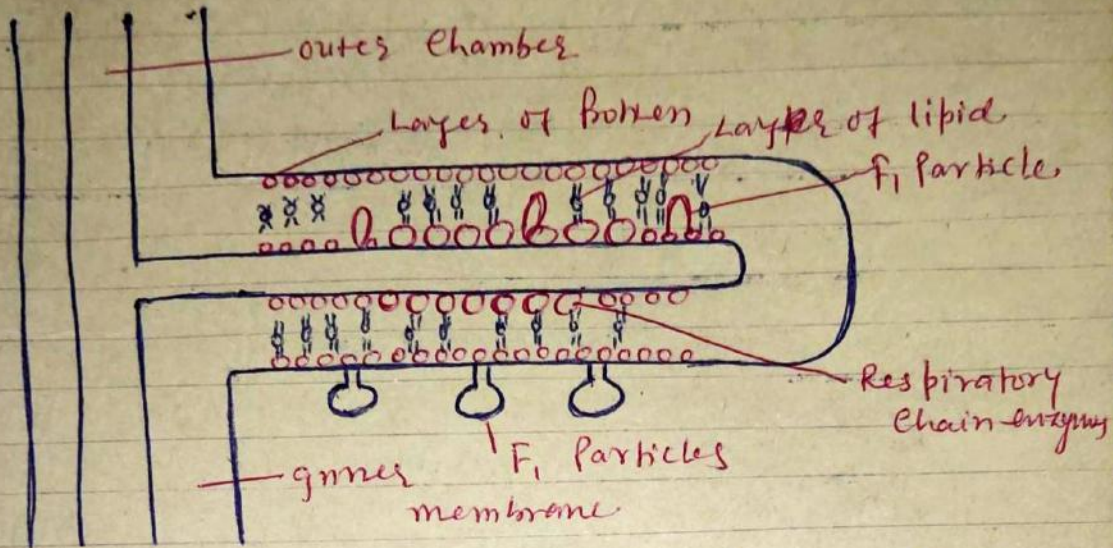 outer Chamber
Layer of Protien
Layer of lipid
F₁ Particle
Respiratory
Chain enzymes
F₁ Particles
Inner
membrane